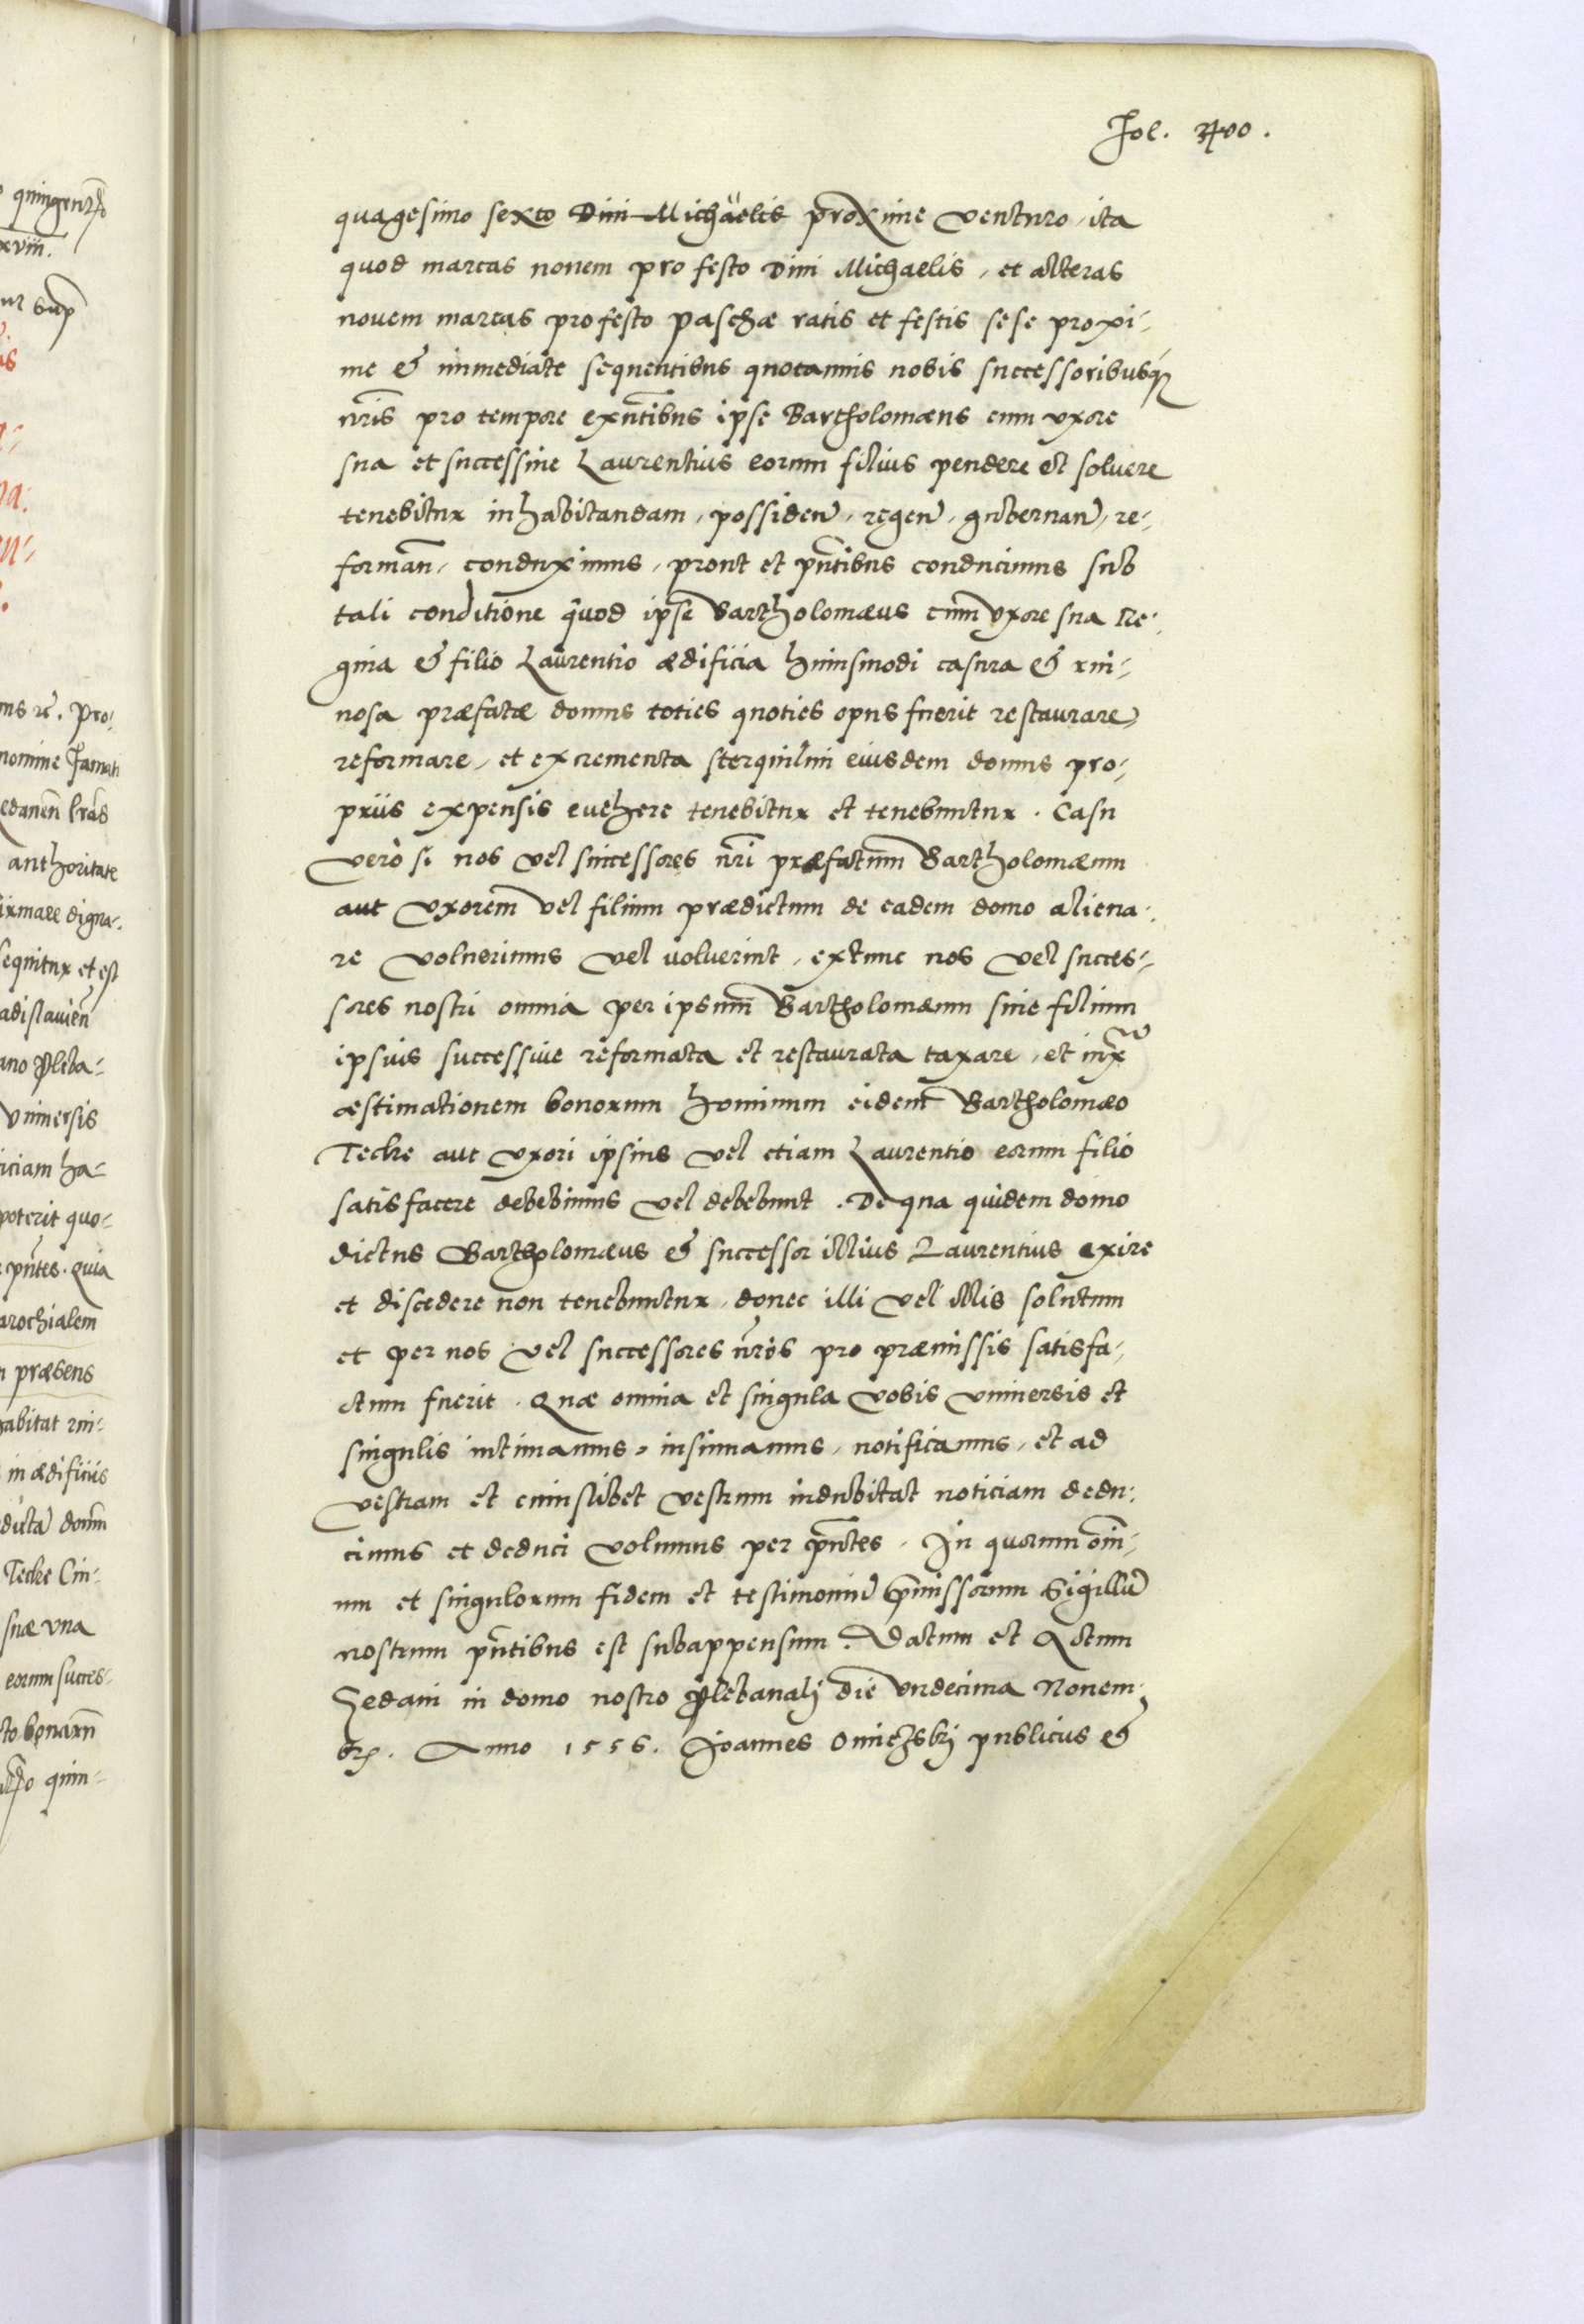 Fol. 400.
quagesimo sexto Diui Michaelis proxime venturo, ita
quod marcas nouem pro festo Diui Michaelis, et alteras
nouem marcas pro festo Paschæ ratis et festis sese proxi-
me & immediate sequentibus quotannis nobis successoribusq́
nr̃is pro tempore exñtibus ipse Bartholomæus cum vxore
sua et successiue Laurentius eorum filius pendere et soluere
tenebitur inhabitandam, possiden̄, regen̄, gubernan̄, re-
forman̄, conduximus, prout et pñtibus conducimus sub
tali conditione quod ipse Bartholomæus cum vxore sua Re-
gina & filio Laurentio ædificia huiusmodi casura & rui-
nosa præfatæ domus toties quoties opus fuerit restaurare,
reformare, et excrementa sterquilinii eiusdem domus pro-
priis expensis euehere tenebitur et tenebuntur. Casu
verò si nos vel successores nr̃i præfatum Bartholomæum
aut vxorem vel filium prædictum de eadem domo aliena-
re voluerimus vel uoluerint, extunc nos vel succes-
sores nostri omnia per ipsum Bartholomæum siue filium
ipsius successiue reformata et restaurata taxare, et iuxᵃ
æstimationem bonorum hominum eidem Bartholomæo
Techre aut vxori ipsius vel etiam Laurentio eorum filio
satisfacere debebimus vel debebunt. De qua quidem domo
dictus Bartholomæus & successor illius Laurentius exire
et discedere non tenebuntur, donec illi vel illis solutum
et per nos vel successores nr̃os pro præmissis satisfa-
ctum fuerit. Quæ omnia et singula vobis vniuersis et
singulis intimamus, insinuamus, notificamus, et ad
vestram et cuiuslibet vestrum indubitat noticiam dedu-
cimus et deduci volumus per pñtes. In quorum om̄i-
um et singulorum fidem et testimoniū p̄missorum Sigillū
nostrum pñtibus est subappensum. Datum et Actum
Gedani in domo nostro plebanali die vndecima Nouem-
br̃. Anno 1556. Joannes publicus &